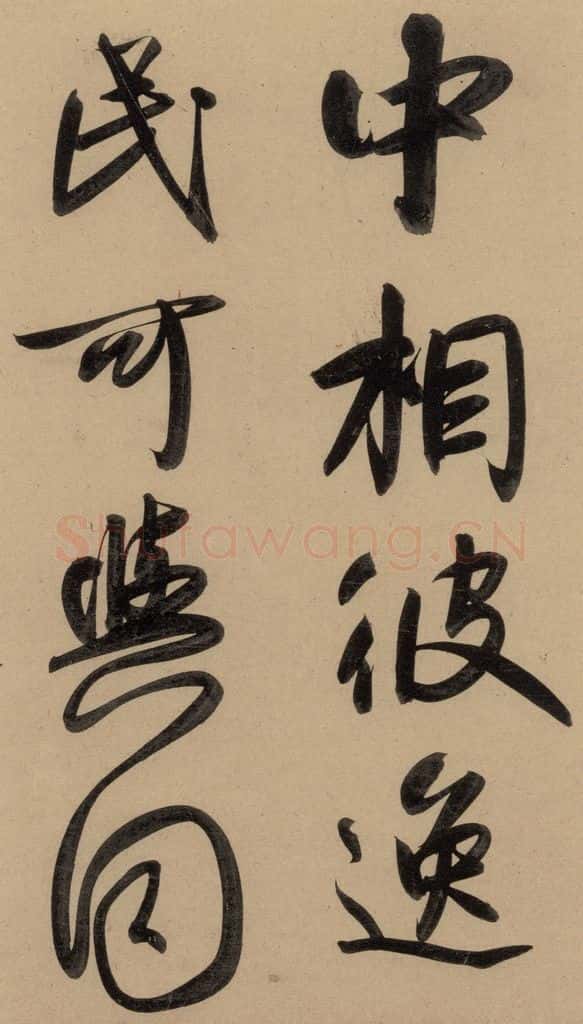 中相彼逸
民可與同
Shufawang.CN